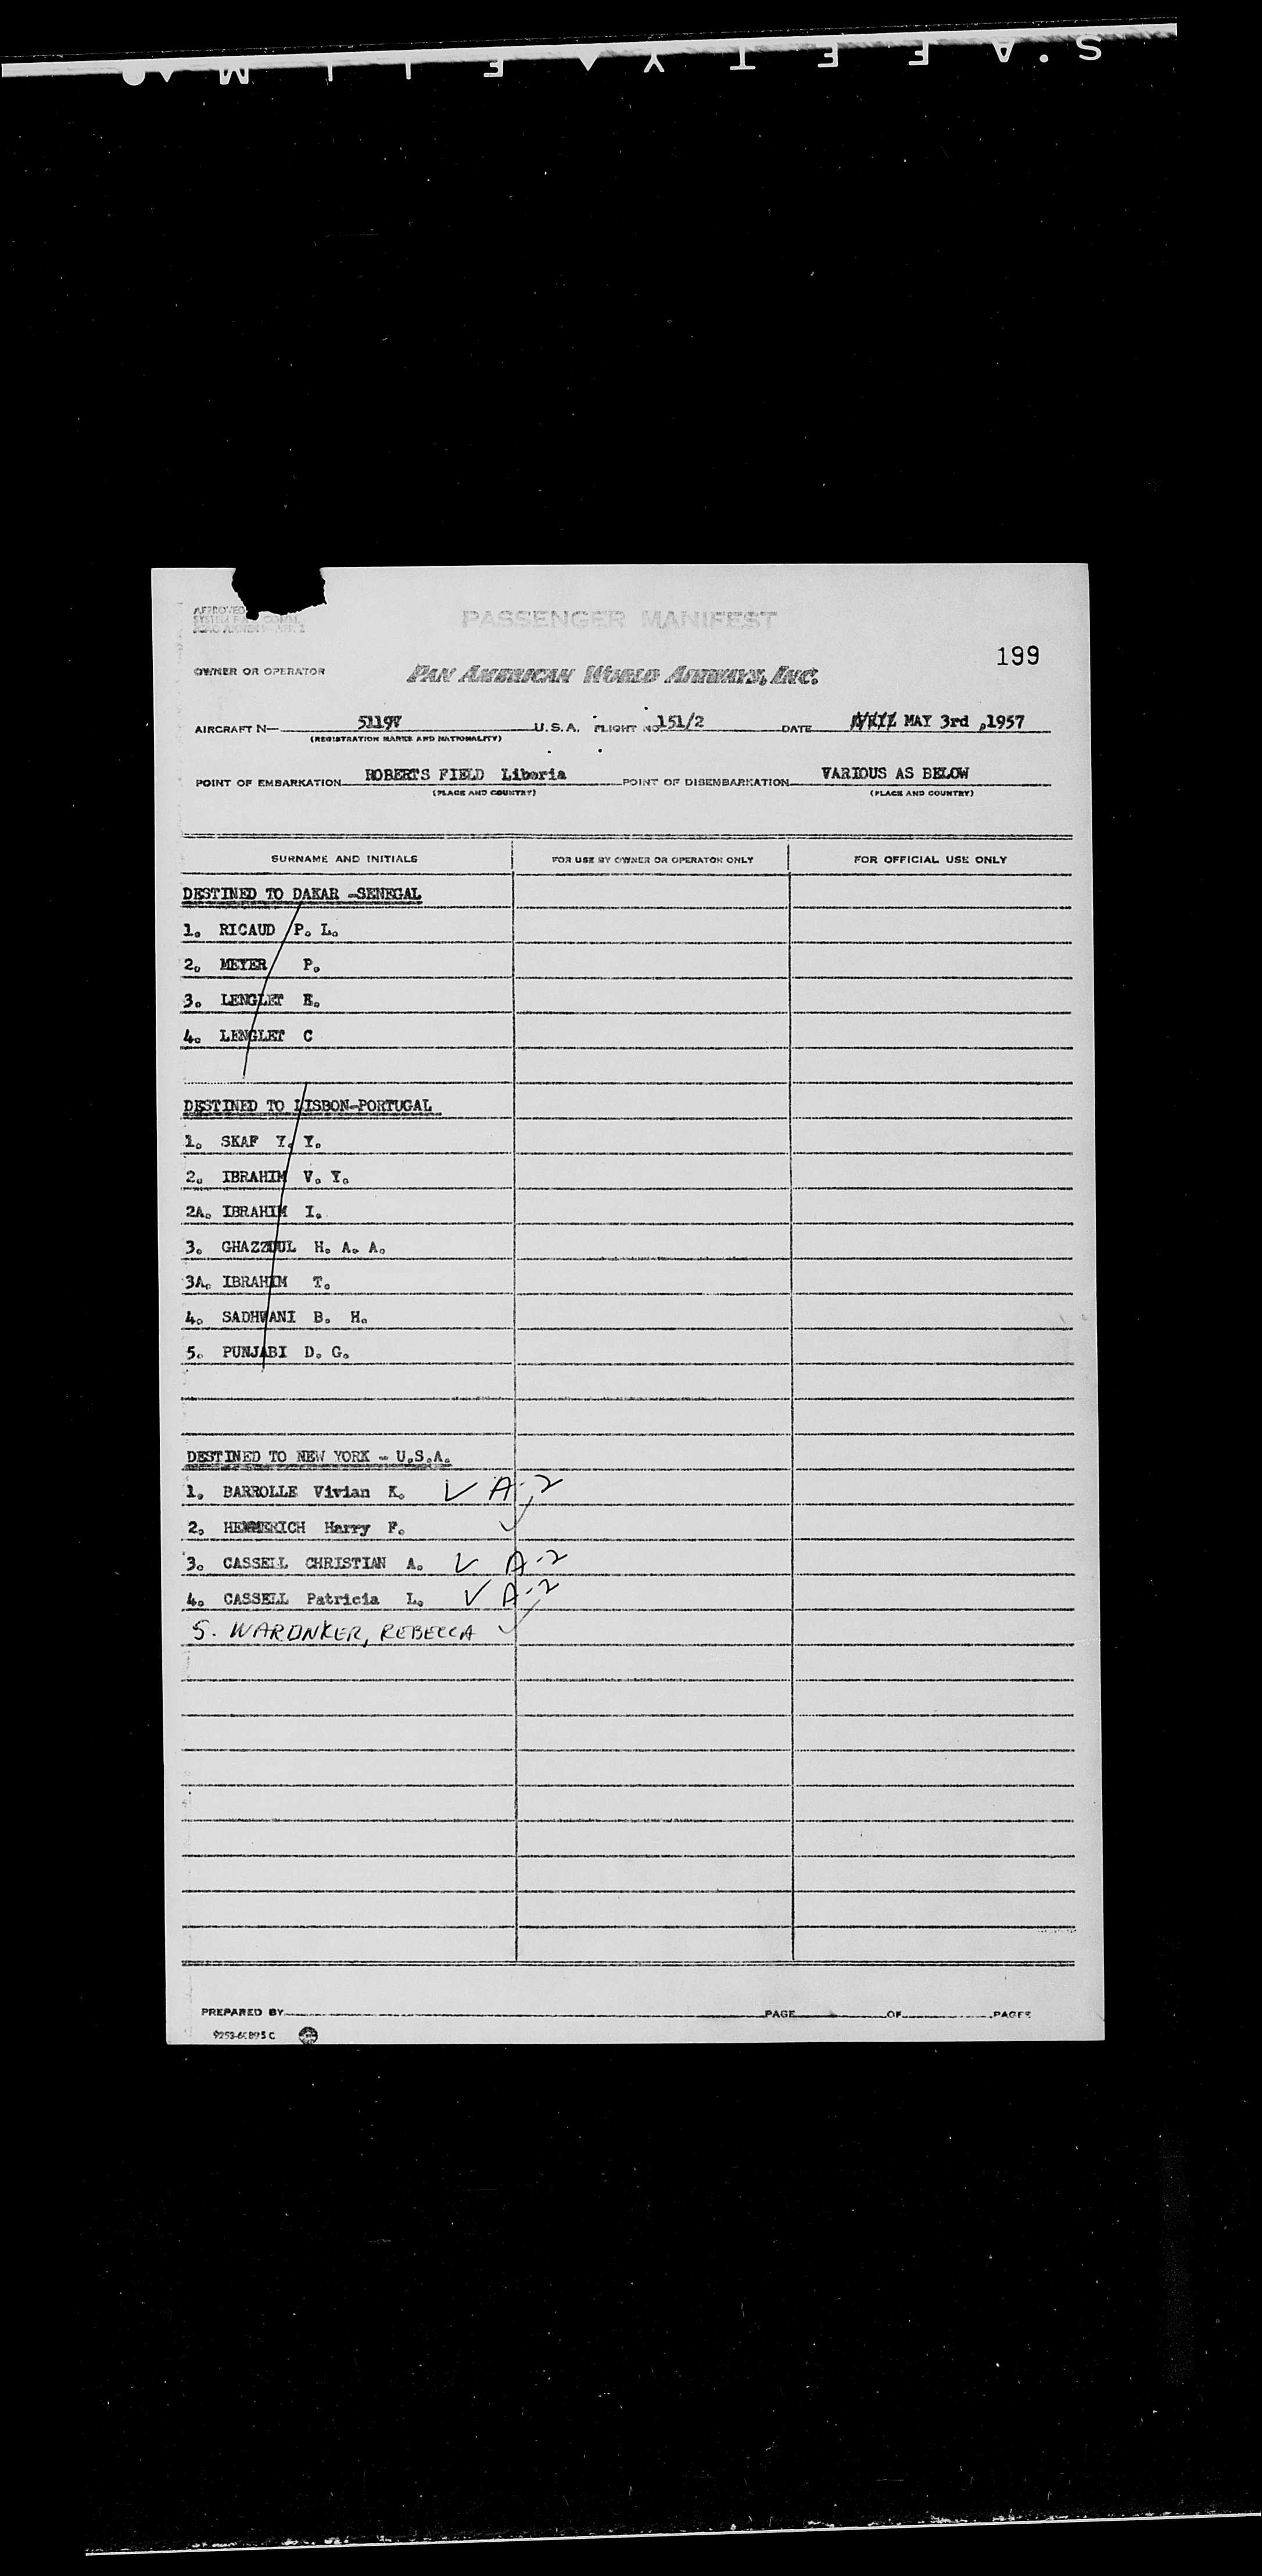 SAFETY FILM
199
PASSENGER MANIFEST
OWNER OR OPERATOR PAN AMERICAN WORLD AIRWAYS, INC.
AIRCRAFT N— 5119V U.S.A. FLIGHT NO. 151/2 DATE APRIL MAY 3rd ,1957
(REGISTRATION MARKS AND NATIONALITY)
POINT OF EMBARKATION ROBERTS FIELD Liberia POINT OF DISEMBARKATION VARIOUS AS BELOW
(PLACE AND COUNTRY) (PLACE AND COUNTRY)
SURNAME AND INITIALS FOR USE BY OWNER OR OPERATOR ONLY FOR OFFICIAL USE ONLY
DESTINED TO DAKAR -SENEGAL
1. RICAUD P. L.
2. MEYER P.
3. LENGLET E.
4. LENGLET C
DESTINED TO LISBON-PORTUGAL
1. SKAF Y. Y.
2. IBRAHIM V. Y.
2A. IBRAHIM I.
3. GHAZZOUL H. A. A.
3A. IBRAHIM T.
4. SADHWANI B. H.
5. PUNJABI D. G.
DESTINED TO NEW YORK - U.S.A.
1. BARROLLE Vivian K. ✓ A-2
2. HEMMERICH Harry F. ✓
3. CASSELL CHRISTIAN A. ✓ A-2
4. CASSELL Patricia L. ✓ A-2
5. WARONKER, REBECCA ✓
PREPARED BY PAGE OF PAGES